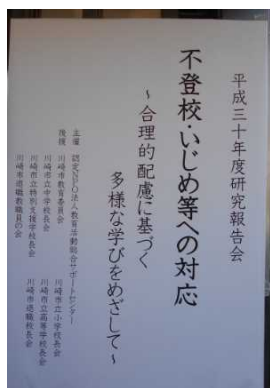 平成三十年度研究報告会
不登校・いじめ等への対応
~合理的配慮に基づく
多様な学びをめざして~
主催 認定NPO法人教育活動総合サポートセンター
後援 川崎市教育委員会
川崎市立小学校長会
川崎市立中学校長会
川崎市立高等学校長会
川崎市立特別支援学校長会
川崎市退職校長会
川崎市退職教職員の会